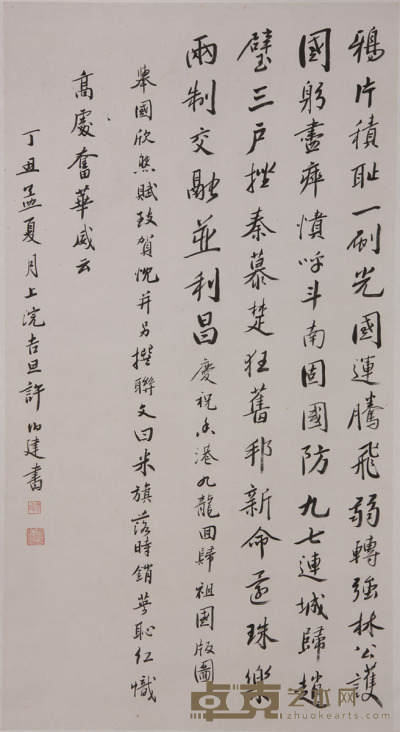 鴉片積恥一刷光國運騰飛弱轉強林公護
國躬盡瘁憤呼斗南固國防九七連城歸趙
璧三戶挫秦慕楚狂舊邦新命還珠樂
兩制交融並利昌慶祝香港九龍回歸祖國版圖
舉國欣然賦致賀忱并另撰聯文曰米旗落時銷夢恥紅幟
高處奮華威云
丁丑孟夏月上浣吉旦許伯建書
卓克艺术网
www.zhuokearts.com